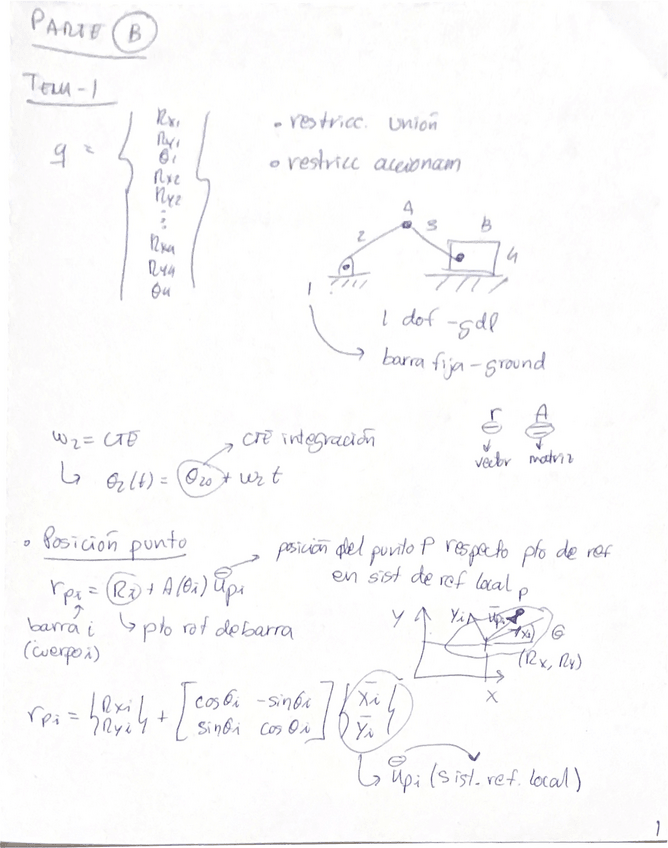 PARTE B
TEMA-1
q = { Rx1
Ry1
θ1
Rx2
Ry2
⋮
Rx4
Ry4
θ4 }
• restricc. unión
• restricc accionam
A
2 3 B
4
1
1 dof - gdl
barra fija - ground
ω2 = CTE
CTE integración
↳ θ2(t) = θ20 + ω2 t
r A
vector matriz
• Posición punto
posición del punto P respecto pto de ref
en sist de ref local
rpi = Ri + A(θi) ūpi
barra i
(cuerpo i)
↳ pto ref de barra
P
Y Yi ūpi Xi θ
(Rx, Ry)
X
rpi = {Rxi Ryi} + [cosθi -sinθi
sinθi cosθi] {X̄i Ȳi}
↳ ūpi (sist. ref. local)
1